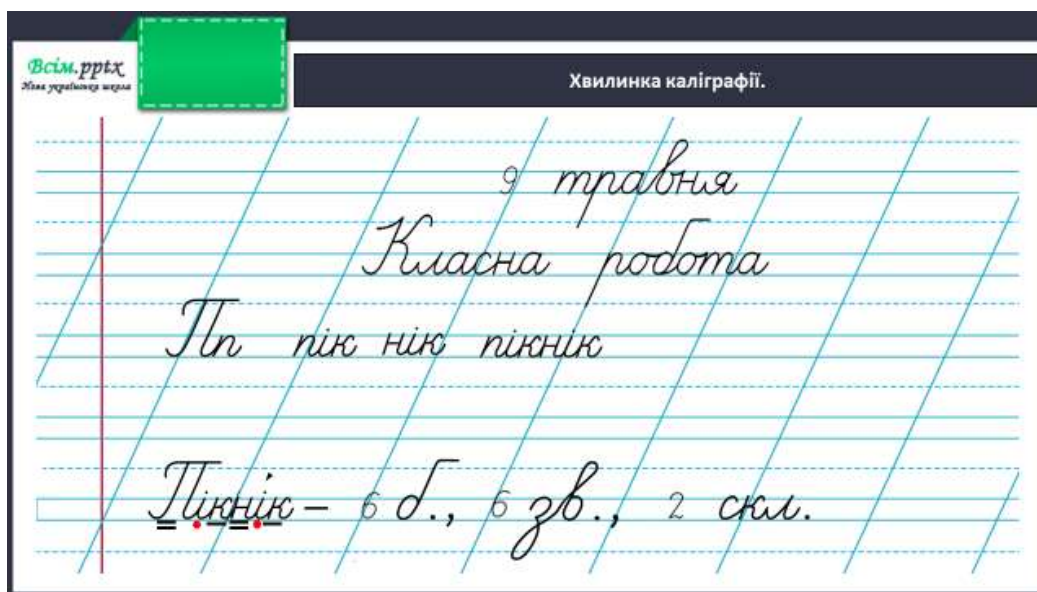 Всім.pptx
Нова українська школа
Хвилинка каліграфії.
9 травня
Класна робота
Пп пік нік пікнік
Пікнік – 6 б., 6 зв., 2 скл.